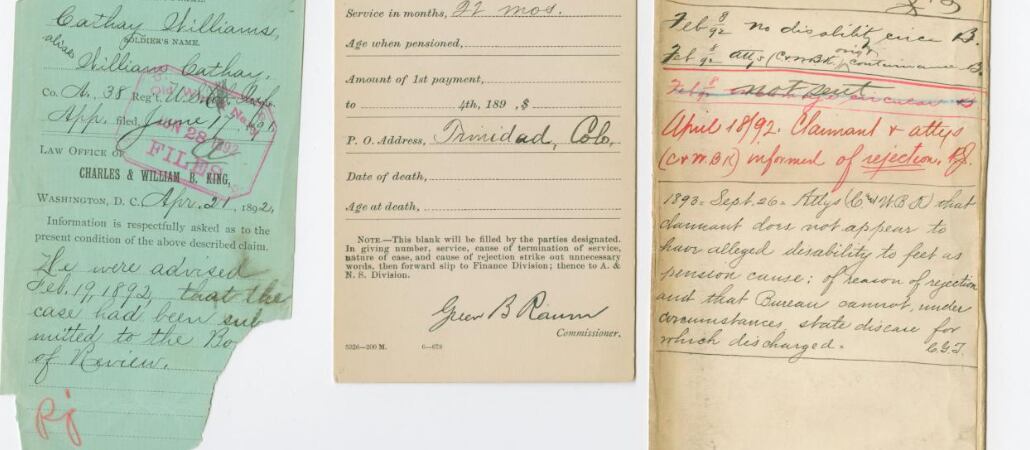 Cathay Williams,
SOLDIER'S NAME.
alias
William Cathay,
Co. A, 38 Reg't, U.S. Inf.
App. filed, June 1891
JUN 28 1892
FILES
LAW OFFICE OF
CHARLES & WILLIAM B. KING,
WASHINGTON, D. C. Apr. 21, 1892,
Information is respectfully asked as to the
present condition of the above described claim.
We were advised
Feb. 19, 1892, that the
case had been sub
mitted to the Bo
of Review.
Service in months, 22 mos.
Age when pensioned,
Amount of 1st payment,
to 4th, 189 , $
P. O. Address, Trinidad, Colo.
Date of death,
Age at death,
NOTE.—This blank will be filled by the parties designated.
In giving number, service, cause of termination of service,
nature of case, and cause of rejection strike out unnecessary
words, then forward slip to Finance Division; thence to A. &
N. S. Division.
Green B Raum
Commissioner.
5326—200 M. 6—678
Feb 8/92 no disability circ B.
Feb 8/92 attys (C&WBK) B.
Feb 8 not sent
April 18/92. Claimant & attys
(C & W. B K) informed of rejection.
1893 - Sept. 26 - Attys (C & W.B.K) that
claimant does not appear to
have alleged disability to feet as
pension cause; of reason of rejection
and that Bureau cannot, under
circumstances, state disease for
which discharged.